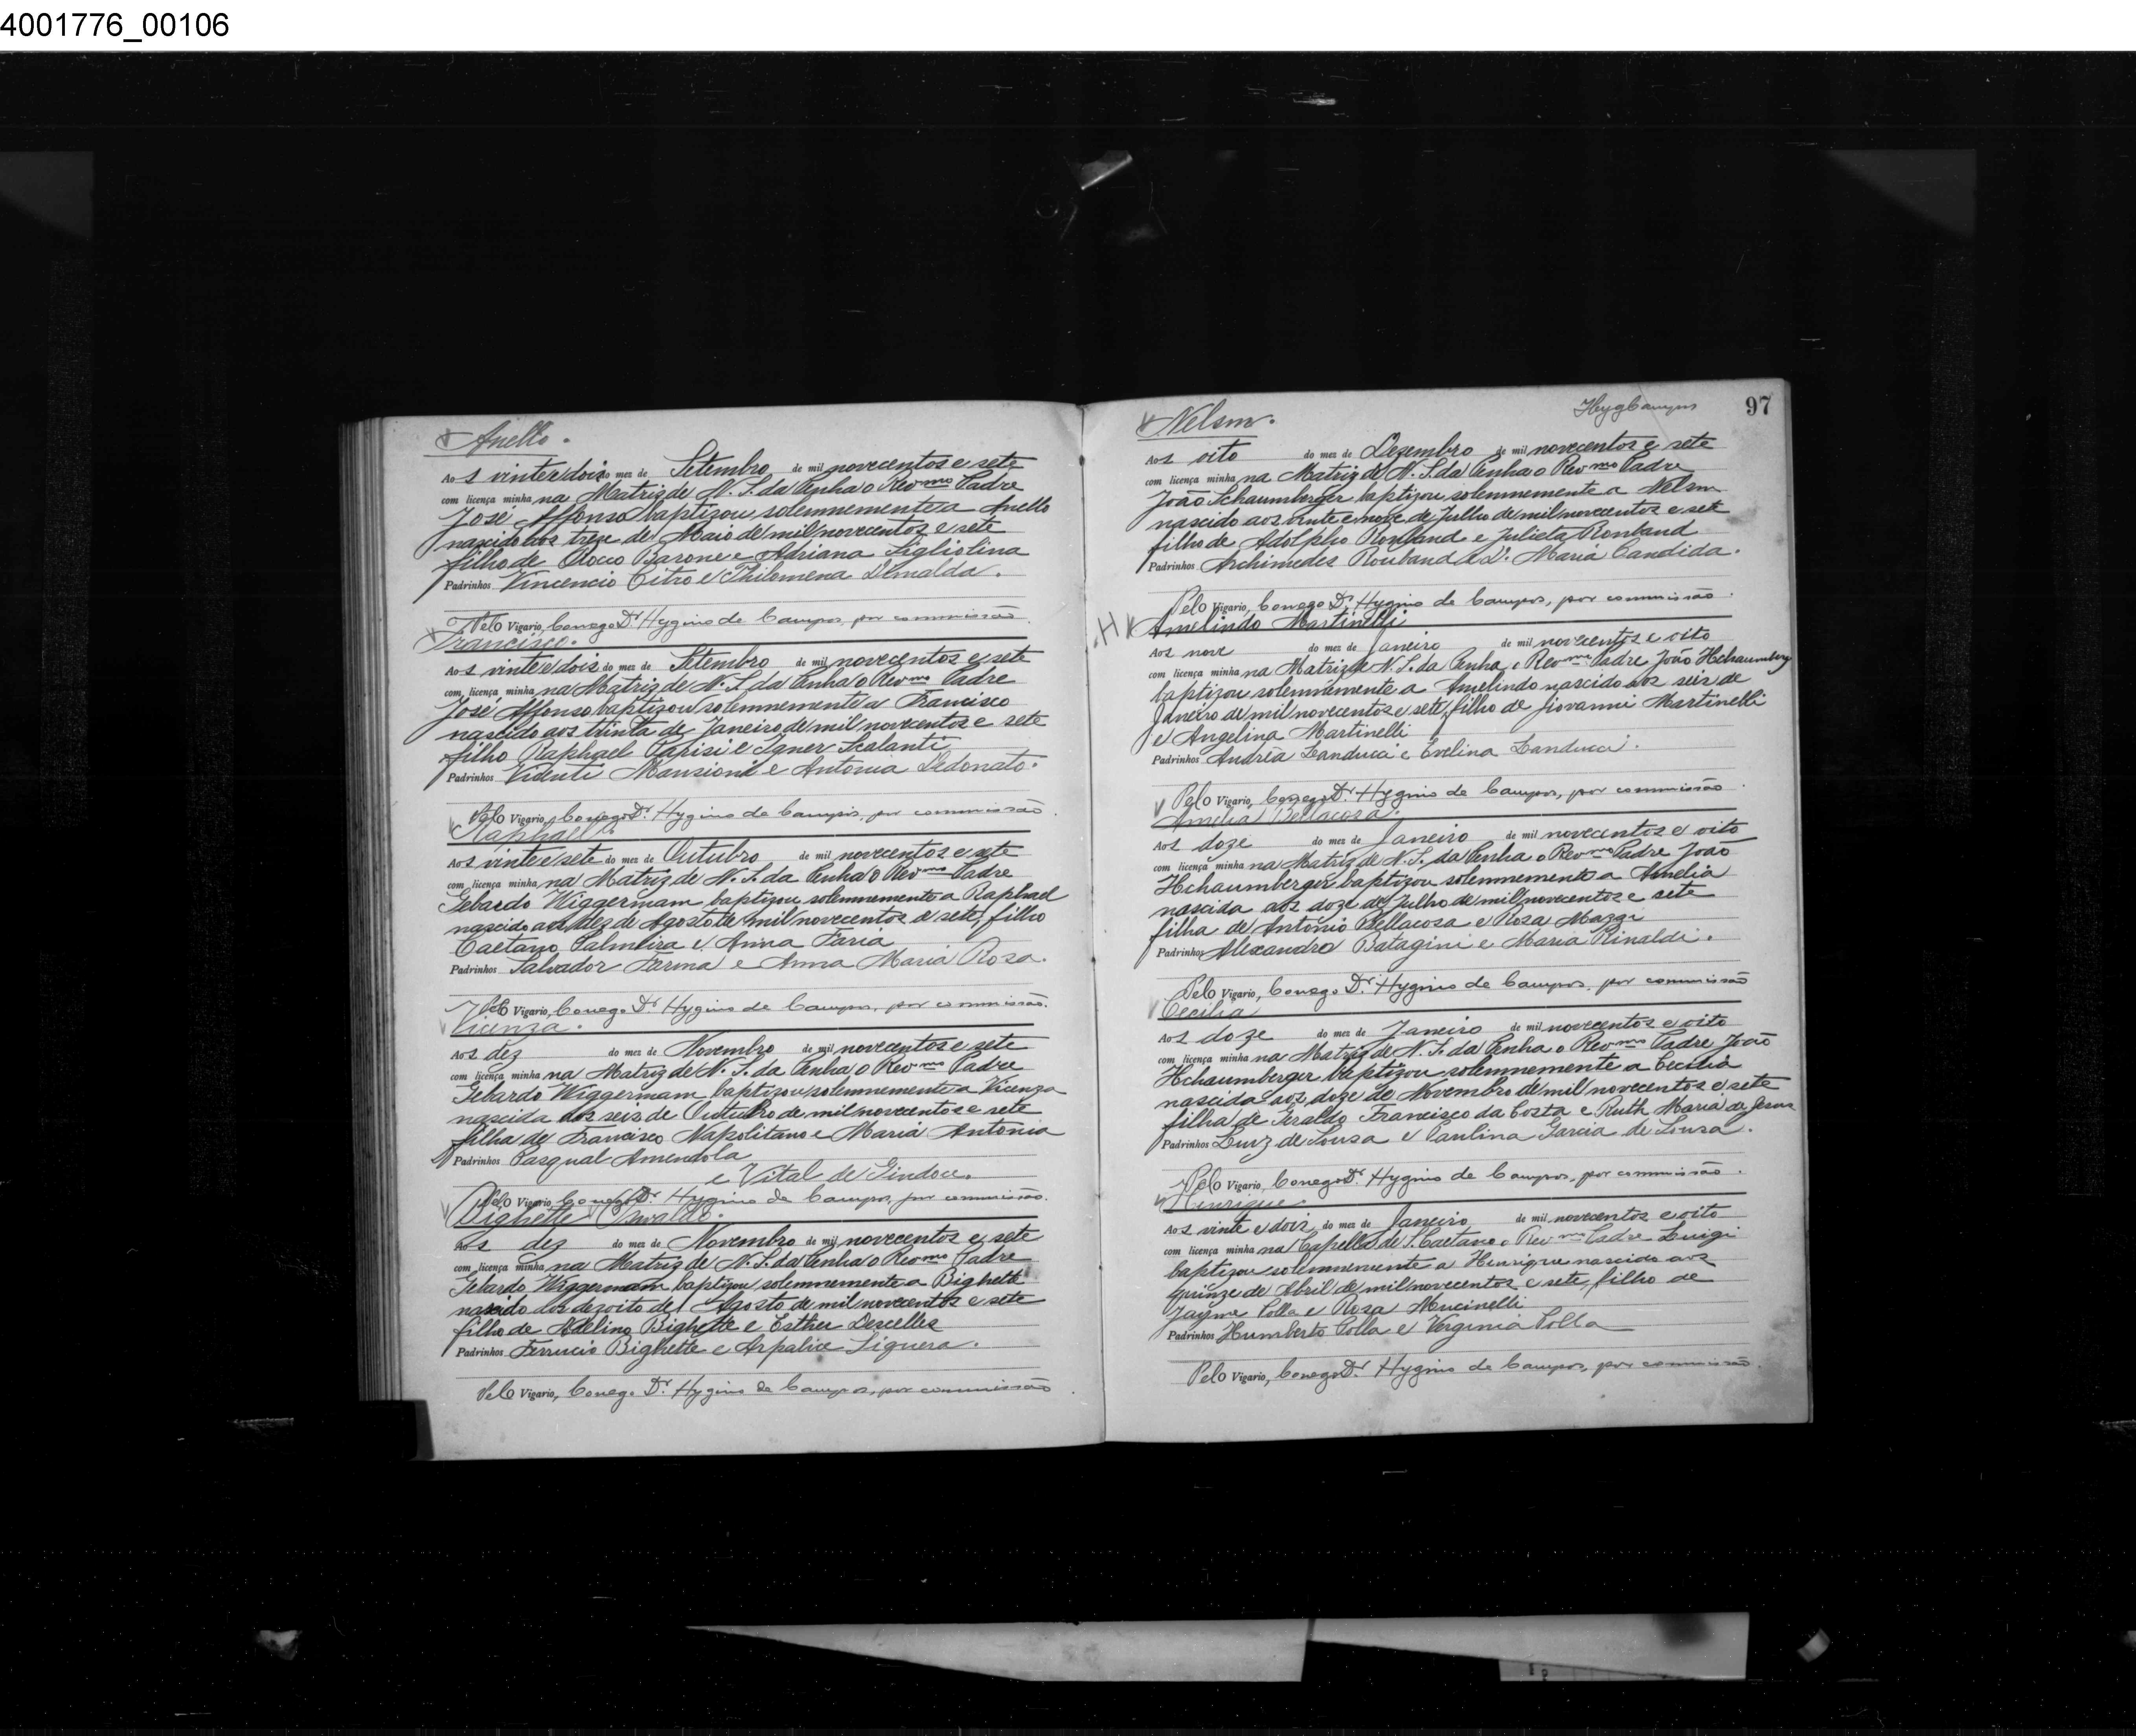 4001776_00106
Anello.
Aos vinte e dois do mez de Setembro de mil novecentos e sete
com licença minha na Matriz de N. S. da Penha o Revmo Padre
José Affonso baptizou solemnemente a Anello
nascido aos treze de Maio de mil novecentos e sete
filho de Rocco Barone e Adriana Figliolina
Padrinhos Vincencio Citro e Philomena
Pelo Vigario, Conego Dr. Hygino de Campos, por commissão.
Francisco.
Aos vinte e dois do mez de Setembro de mil novecentos e sete
com licença minha na Matriz de N. S. da Penha o Revmo Padre
José Affonso baptizou solemnemente a Francisco
nascido aos trinta de Janeiro de mil novecentos e sete
filho Raphael Parisi e Igner Scalanti
Padrinhos Videnti Mansioni e Antonia Dedonato.
Pelo Vigario, Conego Dr. Hygino de Campos, por commissão.
Raphael
Aos vinte e sete do mez de Outubro de mil novecentos e sete
com licença minha na Matriz de N. S. da Penha o Revmo Padre
Gebardo Wiggermam baptizou solemnemente a Raphael
nascido aos dez de Agosto de mil novecentos e sete, filho
Caetano Palmeira e Anna Faria
Padrinhos Salvador Farma e Anna Maria Rosa.
Pelo Vigario, Conego Dr. Hygino de Campos, por commissão.
Vicenza.
Aos dez do mez de Novembro de mil novecentos e sete
com licença minha na Matriz de N. S. da Penha o Revmo Padre
Gebardo Wiggermam baptizou solemnemente a Vicenza
nascida aos seis de Outubro de mil novecentos e sete
filha de Francisco Napolitano e Maria Antonia
Padrinhos Pasqual Amendola
e Vital de Gindoce.
Pelo Vigario, Conego Dr. Hygino de Campos, por commissão.
Bighette Oswaldo.
Aos dez do mez de Novembro de mil novecentos e sete
com licença minha na Matriz de N. S. da Penha o Revmo Padre
Gebardo Wiggermam baptizou solemnemente a Bighette
nascido aos dezoito de Agosto de mil novecentos e sete
filho de Adelino Bighette e Esther Descelles
Padrinhos Ferrucio Bighette e Arpalice Siguera.
Pelo Vigario, Conego Dr. Hygino de Campos, por commissão
HygCampos 97
Nelson.
Aos oito do mez de Dezembro de mil novecentos e sete
com licença minha na Matriz de N. S. da Penha o Revmo Padre
João Schaumberger baptizou solemnemente a Nelson
nascido aos vinte e nove de Julho de mil novecentos e sete
filho de Adolpho Rouband e Julieta Rouband
Padrinhos Archimedes Rouband e D. Maria Candida.
Pelo Vigario, Conego Dr. Hygino de Campos, por commissão.
Amelindo Martinelli
Aos nove do mez de Janeiro de mil novecentos e oito
com licença minha na Matriz de N. S. da Penha o Revmo Padre João Hchaumberg
baptizou solemnemente a Amelindo nascido aos seis de
Janeiro de mil novecentos e sete, filho de Giovanni Martinelli
e Angelina Martinelli
Padrinhos Andréa Landucci e Evelina Landucci.
Pelo Vigario, Conego Dr. Hygino de Campos, por commissão
Amelia Bellacosa.
Aos doze do mez de Janeiro de mil novecentos e oito
com licença minha na Matriz de N. S. da Penha o Revmo Padre João
Hchaumberger baptizou solemnemente a Amelia
nascida aos doze de Julho de mil novecentos e sete
filha de Antonio Bellacosa e Rosa Mazzi
Padrinhos Alexandre Batagini e Maria Rinaldi.
Pelo Vigario, Conego Dr. Hygino de Campos, por commissão
Cecilia
Aos doze do mez de Janeiro de mil novecentos e oito
com licença minha na Matriz de N. S. da Penha o Revmo Padre João
Hchaumberger baptizou solemnemente a Cecilia
nascida aos doze de Novembro de mil novecentos e sete
filha de Geraldo Francisco da Costa e Ruth Maria de Jesus
Padrinhos Luiz de Sousa e Paulina Garcia de Sousa.
Pelo Vigario, Conego Dr. Hygino de Campos, por commissão.
Henrique.
Aos vinte e dois do mez de Janeiro de mil novecentos e oito
com licença minha na Capella de S. Caetano o Revmo Padre Luigi
baptizou solemnemente a Henrique nascido aos
quinze de Abril de mil novecentos e sete, filho de
Jayme Colla e Rosa Mucinelli
Padrinhos Humberto Colla e Verginia Colla
Pelo Vigario, Conego Dr. Hygino de Campos, por commissão.